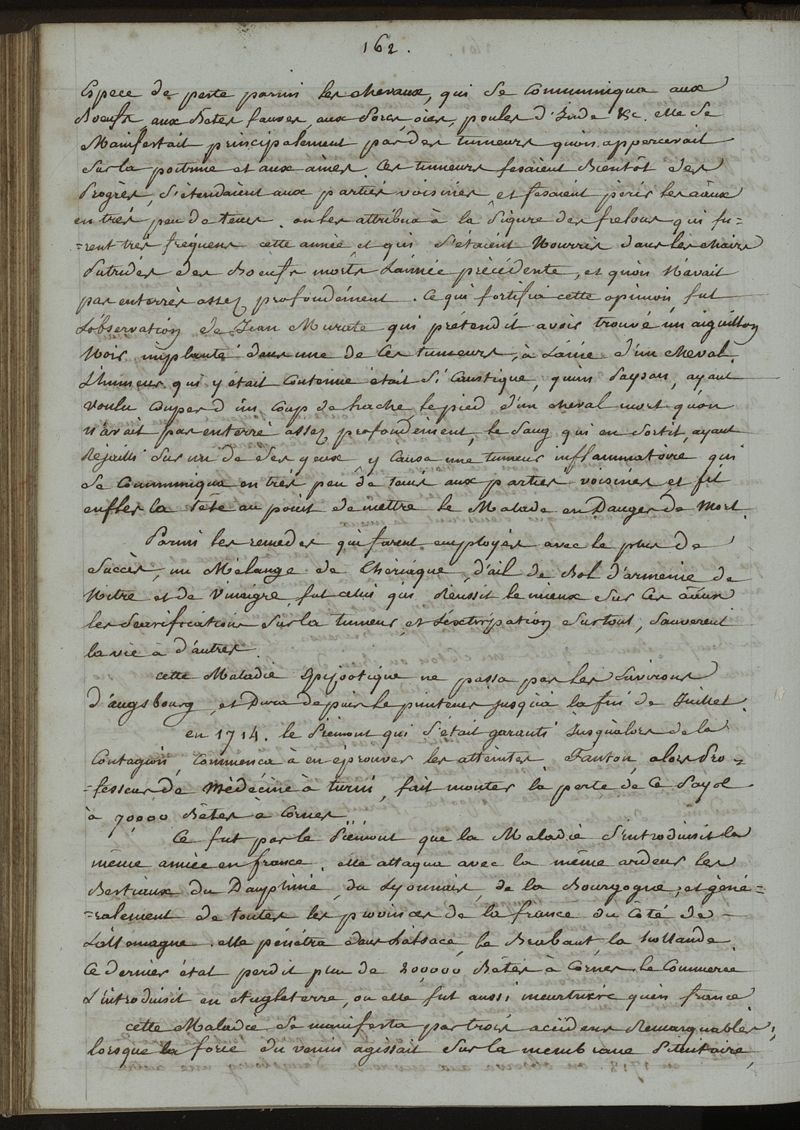 162.
Espece de peste parmi les chevaux, qui se Communiqua aux
Boeufs, aux Betes fauves, aux Porcs, oies, poules d'Inde &c. elle se
Manifestait principalement par des tumeurs qu'on appercevait
Sur la poitrine et aux aines. Ces tumeurs fesaient Bientôt des
Progrès, S'étendaient aux parties voisines, et fesaient périr les
en très peu de tems. on les attribua à la Piqure des frelons qui fu=
=rent très fréquens cette année, et qui S'étaient Nourris dans les chairs
Putrides des Boeufs morts L'année précédente, et qu'on N'avait
pas enterrés assez profondément. Ce qui fortifia cette opinion, fut
L'observation de Jean Murate qui prétendit avoir trouvé un aiguillon
Noir implanté dans une de Ces tumeurs, à L'aine d'un cheval.
L'humeur qui y était Contenue était Si Caustique, qu'un Paysan, ayant
Voulu Couper d'un Coup de hache, le pied d'un cheval mort qu'on
n'avait pas enterré assez profondément, le Sang qui en Sortit, ayant
Rejailli Sur un de Ses yeux y Causa une tumeur inflammatoire qui
Se Communiqua en très peu de tems aux parties voisines et fit
enfler la Tête au point de mettre le Malade en Danger de Mort.
Parmi les remedes qui furent employés avec le plus de
Succès, un Mélange de Theriaque, d'ail de Bol d'armenie de
Nitre et de Vinaigre, fut celui qui Réussit le mieux Sur les
les Scarifications Sur la tumeur, et L'extirpation Surtout, Sauverent
la vie a d'autres.
cette Maladie Epizootique ne passa pas les Environs
d'augsbourg, et Dura depuis le printems jusqu'à la fin de Juillet.
en 1714. le Piémont qui S'était garanti Jusqu'alors de la
Contagion, Commença à en éprouver les atteintes. Fanton, alors Pro=
=fesseur de Médecine à turin, fait monter la perte de Ce Pays
à 70,000 Bêtes à Cornes.
Ce fut par le Piémont que la Maladie S'introduisit la
même année en france. elle attaqua avec la même ardeur les
Bestiaux du Dauphiné, du Lyonnais, de la Bourgogne, et géné=
=ralement de toutes les provinces de la france du Côté de
L'allemagne. elle pénétra dans L'alsace, le Brabant, la hollande.
Ce dernier état perdit plus de 200,000 Bêtes à Cornes. le Commerce
L'introduisit en Angleterre, ou elle fut aussi meurtrière qu'en france
cette Maladie Se manifesta par trois accidens Remarquables;
lorsque la force du venin agissait Sur la membrane Pituitaire,